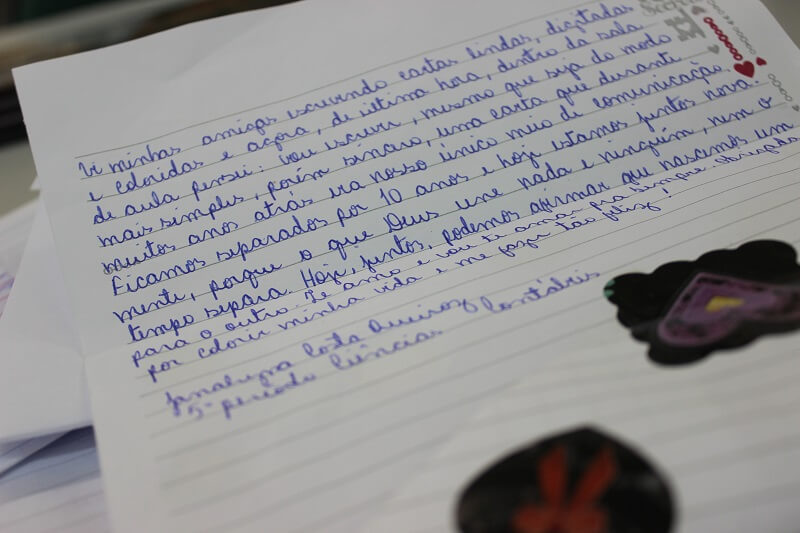 Vi minhas amigas escrevendo cartas lindas, digitadas
e coloridas e agora, de última hora, dentro da sala
de aula pensei: vou escrever, mesmo que seja do modo
mais simples, porém sincero, uma carta que durante
muitos anos atrás era nosso único meio de comunicação.
Ficamos separados por 10 anos e hoje estamos juntos nova-
mente, porque o que Deus une nada e ninguém, nem o
tempo separa. Hoje, juntos, podemos afirmar que nascemos um
para o outro. Te amo e vou te amar pra sempre. Obrigada
por colorir minha vida e me fazer tão feliz!
Costa Queiroz
5º período Ciências Contábeis